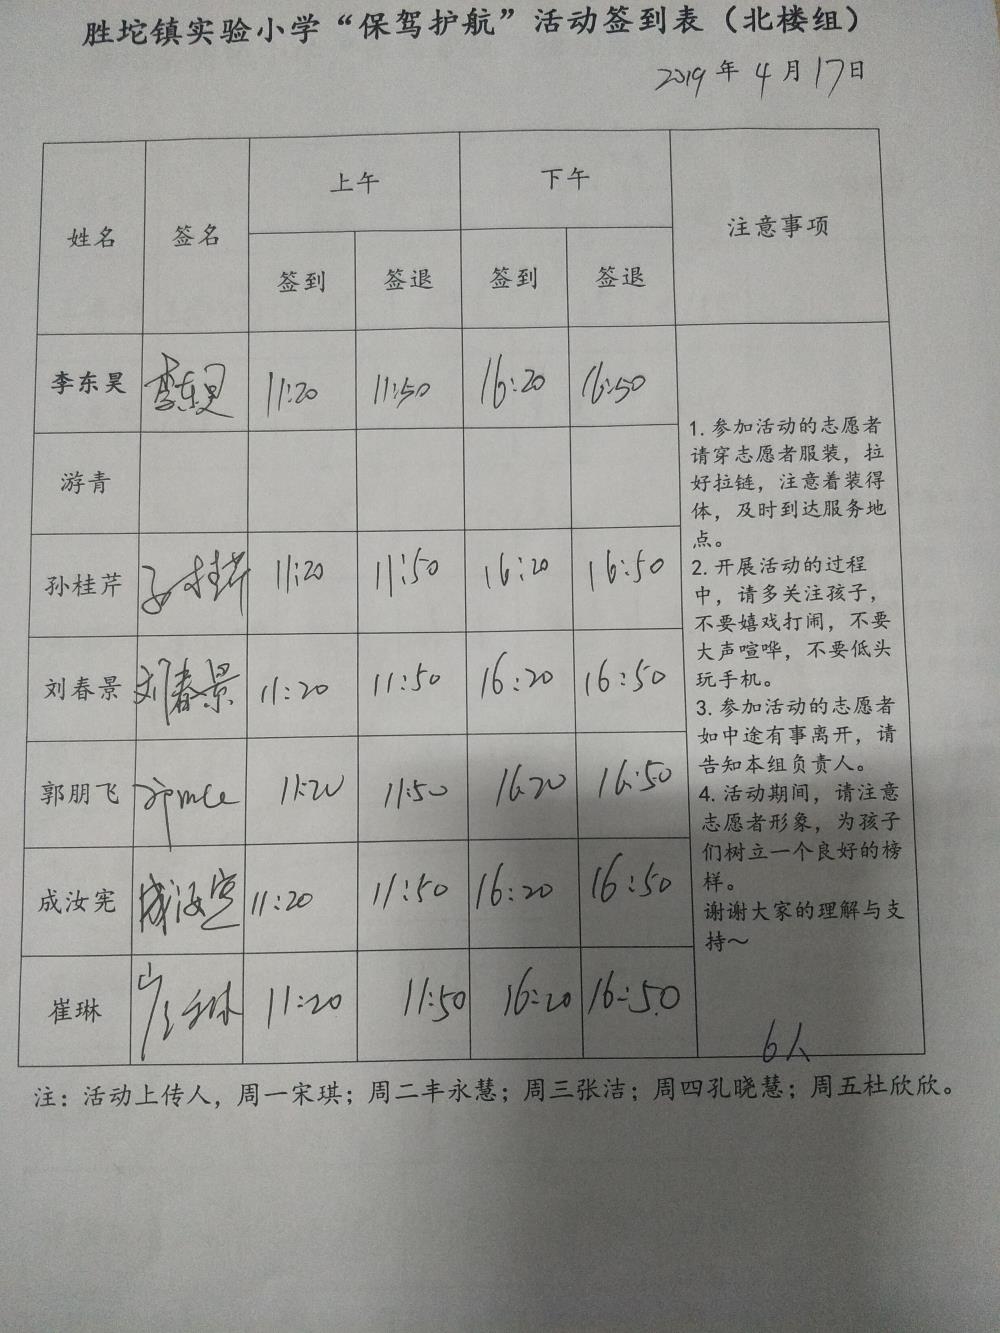 胜坨镇实验小学“保驾护航”活动签到表（北楼组）
2019年4月17日
姓名 签名 上午 下午 注意事项
签到 签退 签到 签退
李东昊 李东昊 11:20 11:50 16:20 16:50
游青
孙桂芹 孙桂芹 11:20 11:50 16:20 16:50
刘春景 刘春景 11:20 11:50 16:20 16:50
郭朋飞 11:20 11:50 16:20 16:50
成汝宪 成汝宪 11:20 11:50 16:20 16:50
崔琳 崔琳 11:20 11:50 16:20 16:50
1. 参加活动的志愿者
请穿志愿者服装，拉
好拉链，注意着装得
体，及时到达服务地
点。
2. 开展活动的过程
中，请多关注孩子，
不要嬉戏打闹，不要
大声喧哗，不要低头
玩手机。
3. 参加活动的志愿者
如中途有事离开，请
告知本组负责人。
4. 活动期间，请注意
志愿者形象，为孩子
们树立一个良好的榜
样。
谢谢大家的理解与支
持～
6人
注：活动上传人，周一宋琪；周二丰永慧；周三张洁；周四孔晓慧；周五杜欣欣。